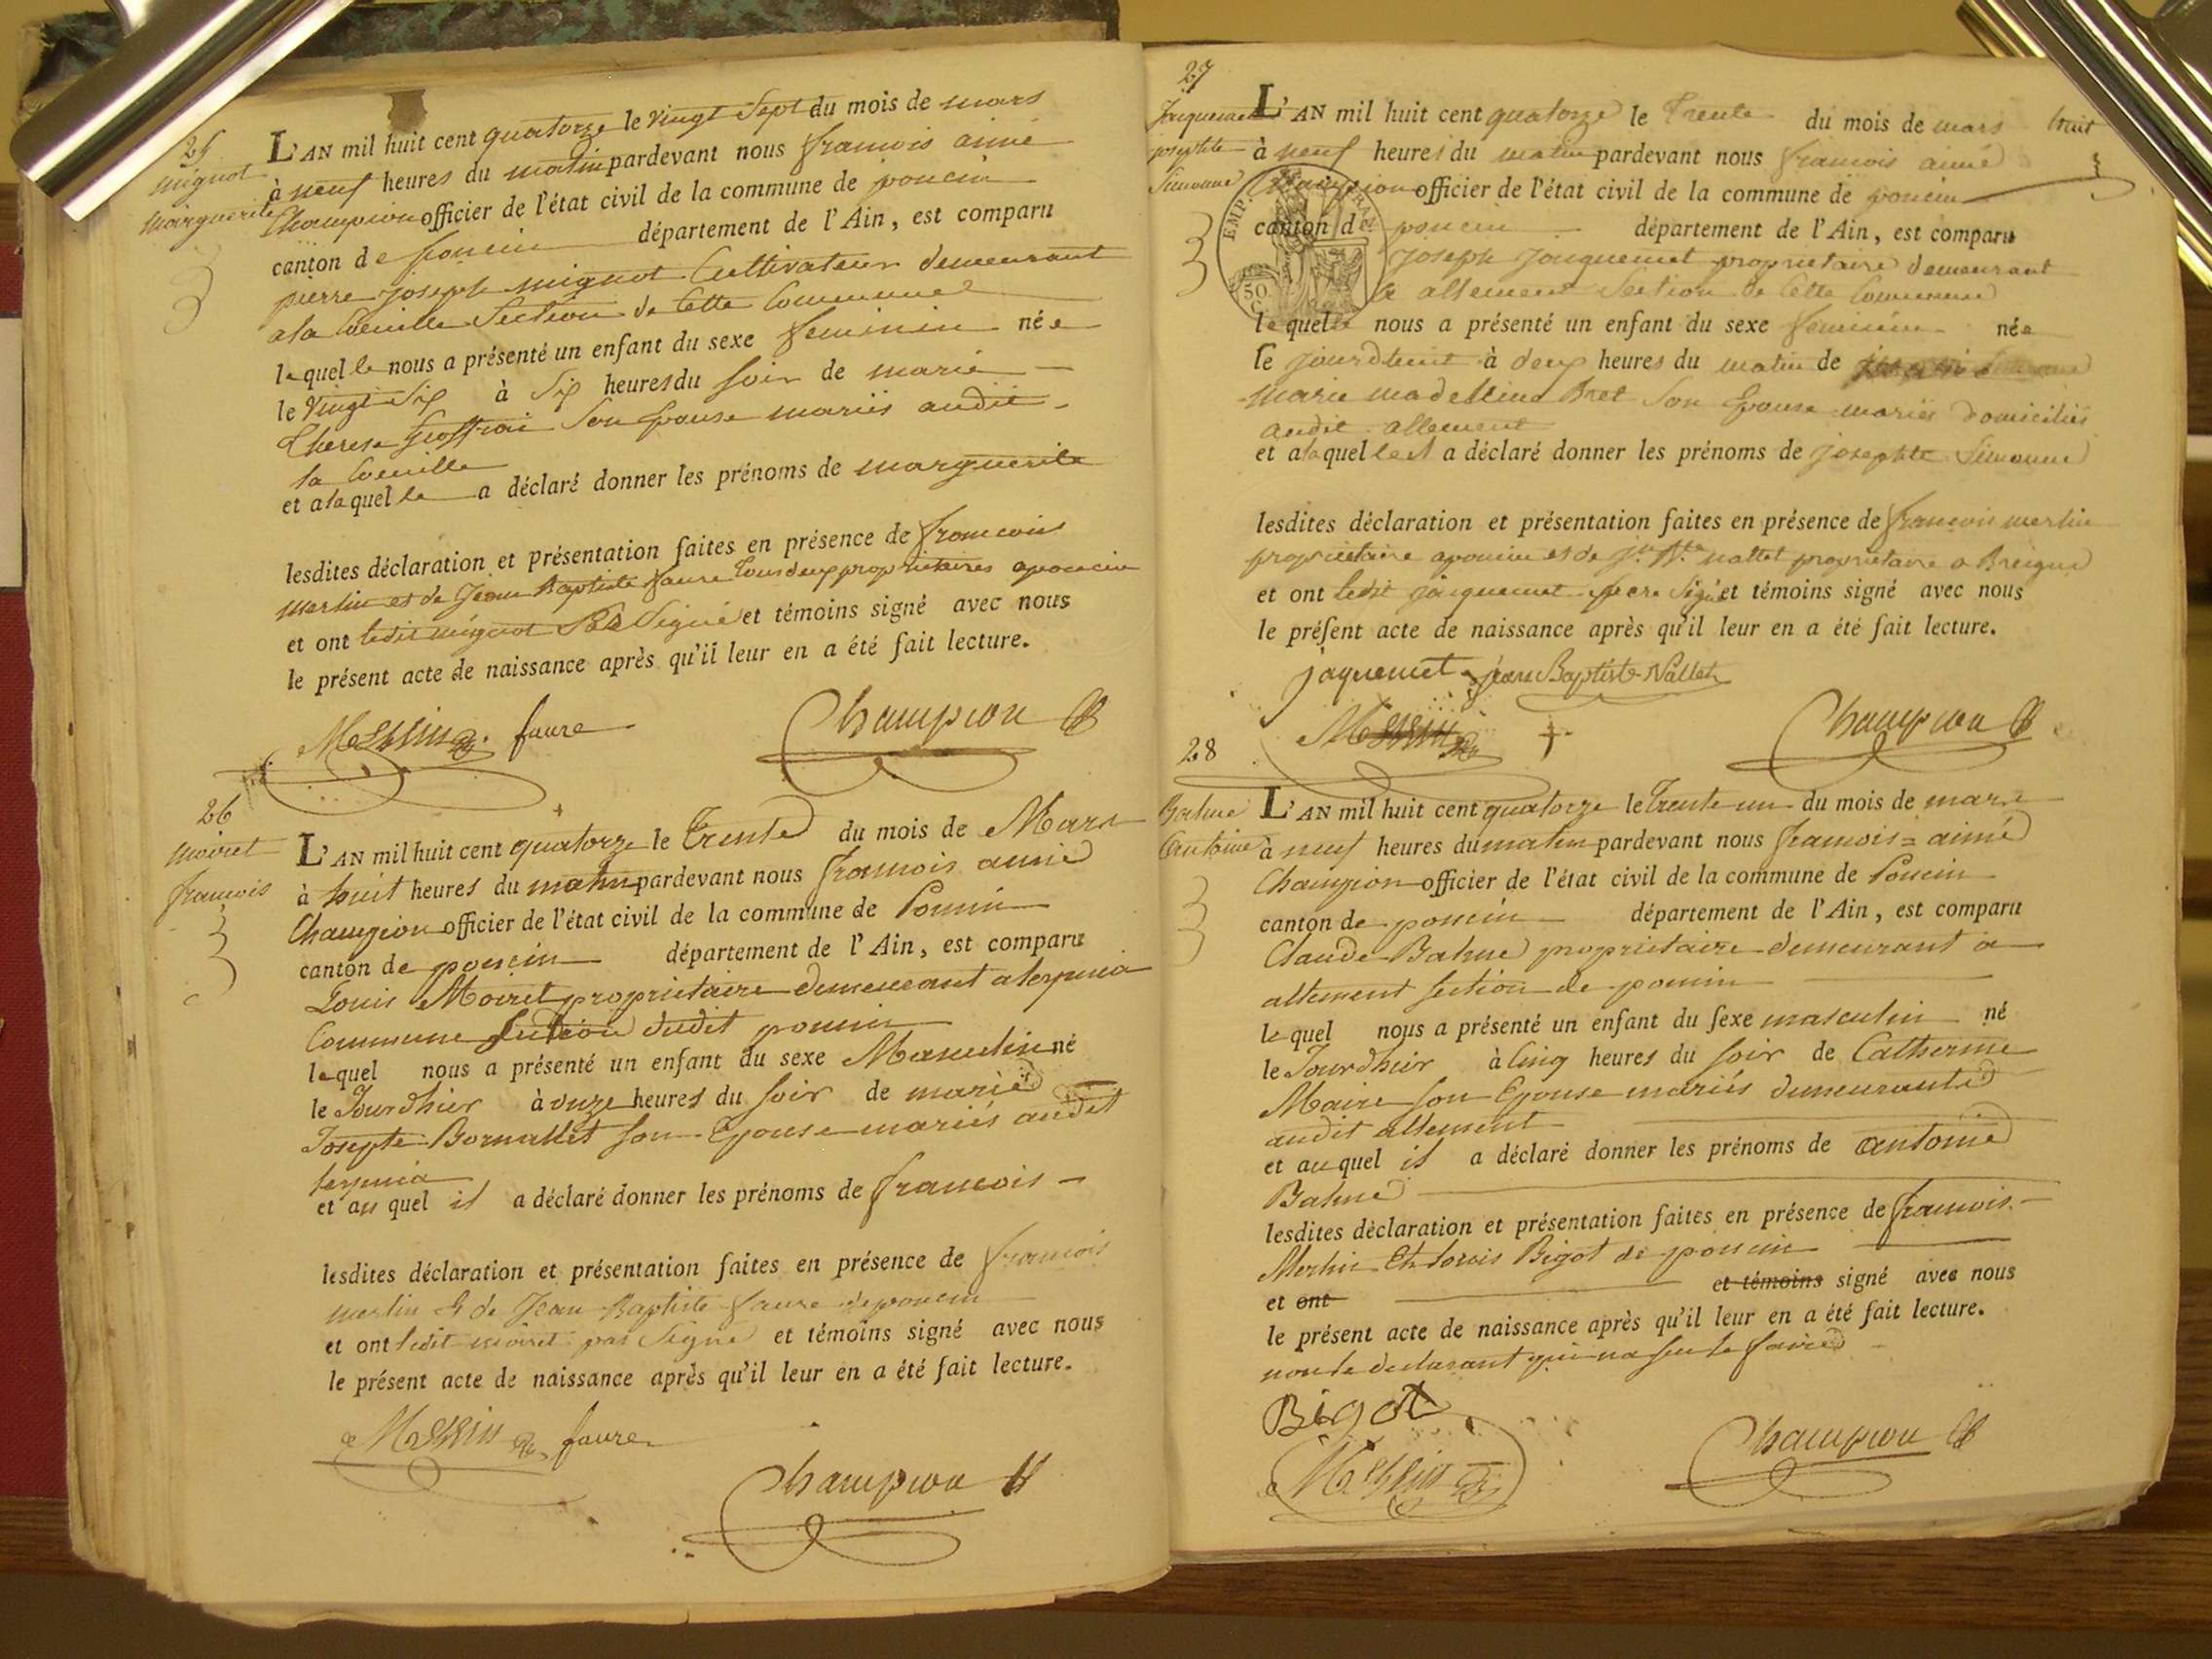 25
mignot
marguerite
L'AN mil huit cent quatorze le vingt Sept du mois de mars
à neuf heures du matin pardevant nous francois aimé
Champion officier de l'état civil de la commune de poncin
canton de poncin département de l'Ain, est comparu
pierre joseph mignot Cultivateur demeurant
a la Cueuille Section de Cette Commune
lequel le nous a présenté un enfant du sexe feminin née
le vingt Six à Six heures du soir de marie
Therese son Epouse mariés audit
la Cueuille
et a laquelle a déclaré donner les prénoms de marguerite
lesdites déclaration et présentation faites en présence de francois
merlin et de Jean Baptiste faure tous deux proprietaires a poncin
et ont ledit mignot pas Signé et témoins signé avec nous
le présent acte de naissance après qu'il leur en a été fait lecture.
Merlin faure Champion
26
moiret
francois
L'AN mil huit cent quatorze le Trente du mois de Mars
à huit heures du matin pardevant nous francois aimé
Champion officier de l'état civil de la commune de Poncin
canton de poncin département de l'Ain, est comparu
Louis Moiret proprietaire demeurant a
Commune Section dudit poncin
lequel nous a présenté un enfant du sexe Masculin né
le Jourdhier à onze heures du soir de marie
Josepte son Epouse mariés audit
et au quel il a déclaré donner les prénoms de francois
lesdites déclaration et présentation faites en présence de francois
merlin & de Jean Baptiste faure de poncin
et ont ledit moiret pas Signé et témoins signé avec nous
le présent acte de naissance après qu'il leur en a été fait lecture.
Merlin faure
Champion
27
Jaquemet
josephte
Simonne
L'AN mil huit cent quatorze le Trente du mois de mars huit
à neuf heures du matin pardevant nous francois aimé
Champion officier de l'état civil de la commune de poncin
canton de poncin département de l'Ain, est comparu
EMP. FRAN.
50 C
joseph jaquemet proprietaire demeurant
a allement Section de Cette Commune
lequel nous a présenté un enfant du sexe feminin née
le jourdhuit à deux heures du matin de
marie madeleine Bret Son Epouse mariés domiciliés
audit allement
et a laquelle il a déclaré donner les prénoms de josephte Simonne
lesdites déclaration et présentation faites en présence de francois merlin
proprietaire a poncin et de Jn Bte nallet proprietaire a
et ont ledit jaquemet pere Signé et témoins signé avec nous
le présent acte de naissance après qu'il leur en a été fait lecture.
jaquemet jean Baptiste Nallet
Merlin Champion
28
Bahue
Antoine
L'AN mil huit cent quatorze le Trente un du mois de mars
à neuf heures du matin pardevant nous francois = aimé
Champion officier de l'état civil de la commune de Poncin
canton de poncin département de l'Ain, est comparu
Claude Bahue proprietaire demeurant a
allement section de poncin
lequel nous a présenté un enfant du sexe masculin né
le Jourdhier à Cinq heures du soir de Catherine
Maire son Epouse mariés demeurants
audit allement
et au quel il a déclaré donner les prénoms de antoine
Bahue
lesdites déclaration et présentation faites en présence de francois
Merlin Et Louis Bigot de poncin
et ont et témoins signé avec nous
le présent acte de naissance après qu'il leur en a été fait lecture.
non le declarant qui na seu le faire
Bigot
Merlin Champion